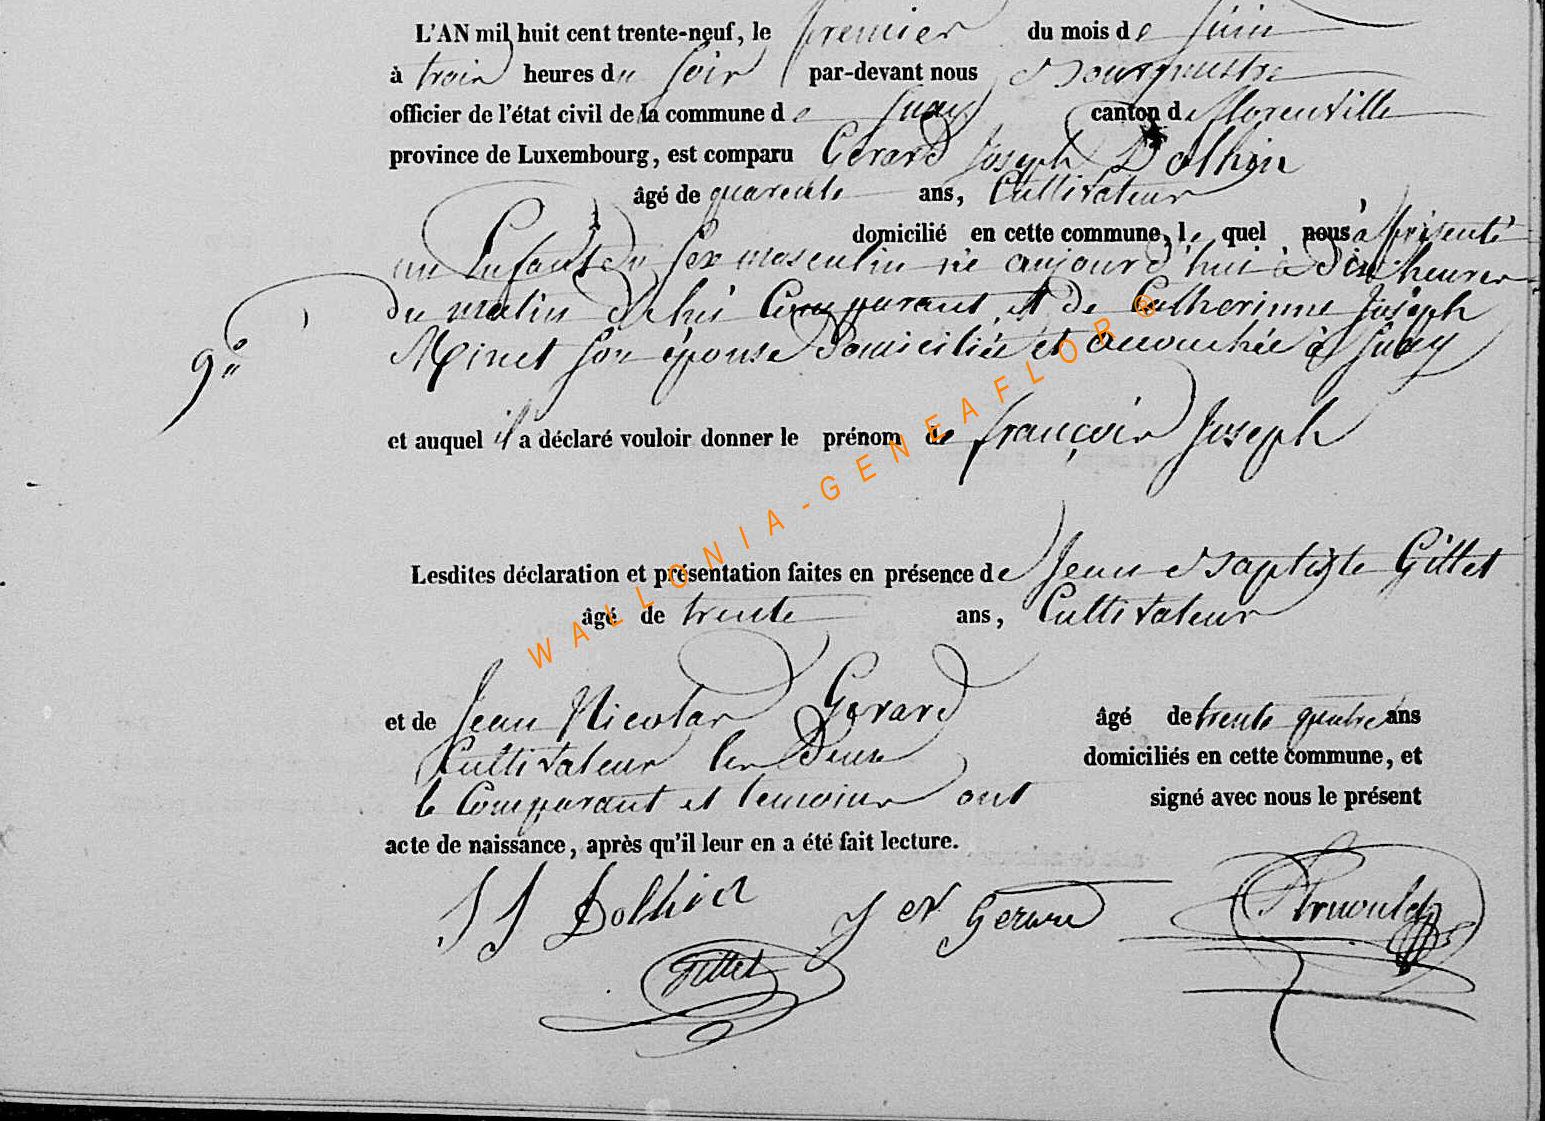 L'AN mil huit cent trente-neuf, le premier du mois de Juin
à trois heures du soir par-devant nous Bourgmestre
officier de l'état civil de la commune de canton de Florenville
province de Luxembourg, est comparu Gérard Joseph Dolhin
âgé de quarente ans, Cultivateur
domicilié en cette commune, le quel nous a présenté
un Enfant du sex masculin né aujourd'hui à dix heures
du matin de lui Comparant, et de Catherinne Joseph
9°
Minet son épouse domiciliée et accouchée à
et auquel il a déclaré vouloir donner le prénom de françois Joseph
Lesdites déclaration et présentation faites en présence de Jean Baptiste Gillet
âgé de trente ans, Cultivateur
et de Jean Nicolas Gérard âgé de trente quatre ans
Cultivateur les Deux domiciliés en cette commune, et
le Comparant et temoins ont signé avec nous le présent
acte de naissance, après qu'il leur en a été fait lecture.
Dolhin J N Gerard
Gillet
WALLONIA-GENEAFLOR®